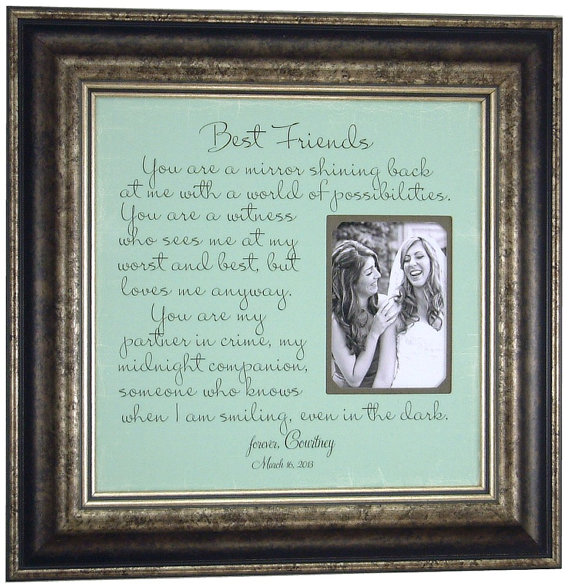 Best Friends
You are a mirror shining back
at me with a world of possibilities.
You are a witness
who sees me at my
worst and best, but
loves me anyway.
You are my
partner in crime, my
midnight companion,
someone who knows
when I am smiling, even in the dark.
forever, Courtney
March 16, 2013